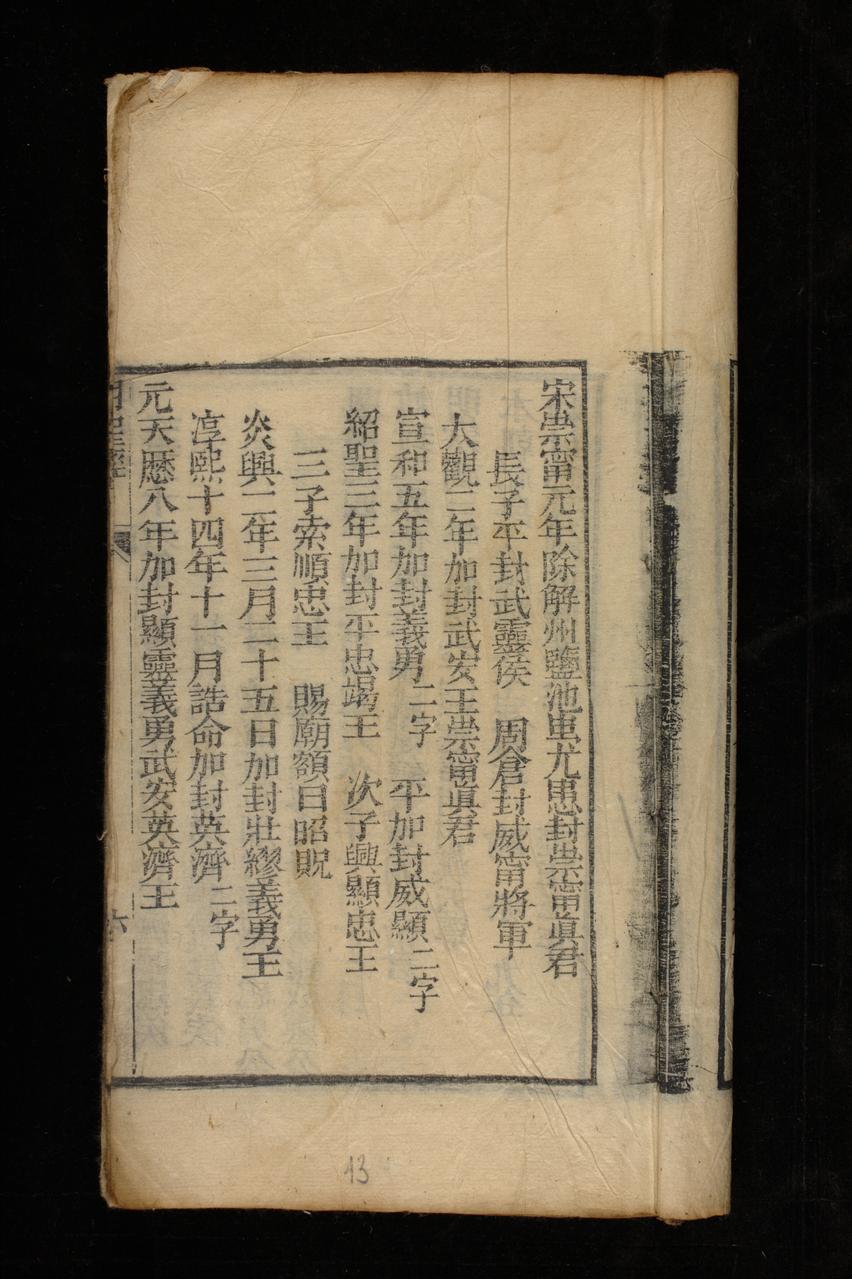 宋崇甯元年除解州鹽池蚩尤患封崇甯眞君
長子平封武靈侯　周倉封威甯將軍
大觀二年加封武安王崇甯眞君
宣和五年加封義勇二字　平加封威顯二字
紹聖三年加封平忠竭王　次子興顯忠王
三子索順忠王　賜廟額曰昭貺
炎興二年三月二十五日加封壯繆義勇王
淳熙十四年十一月誥命加封英濟二字
元天歷八年加封顯靈義勇武安英濟王
明聖經
六
13